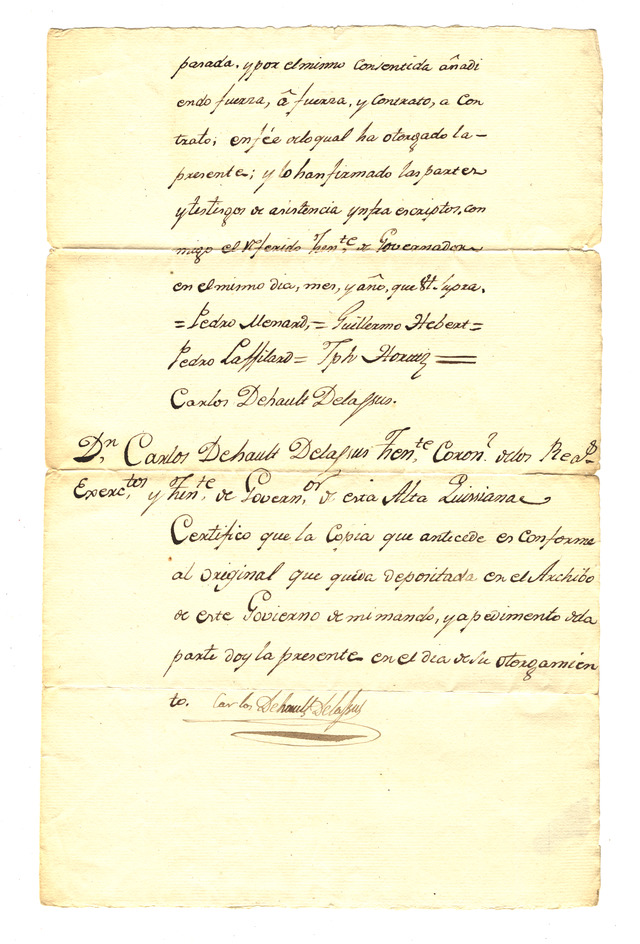 pasada, y por el mismo consentida añadi
endo fuerza, â fuerza, y contrato, a con
trato; en fée delo qual ha otorgado la
presente; y lo han firmado las partes
y testigos de asistencia ynfra escriptos, con
migo el referido Then.te de Governador
en el mismo dia, mes, y año, que Ut Supra.
= Pedro Menard, = Guillermo Hebert =
Pedro Laffilard = Tph
Carlos Dehault Delassus.
D.n Carlos Dehault Delassus Then.te Coron.l delos Rea.s
Exerc.tos y Then.te de Govern.or de esta Alta Luisiana
Certifico que la Copia que antecede es conforme
al original que queda depositada en el Archibo
de este Govierno de mi mando, y apedimento dela
parte doy la presente en el dia de su otorgamien
to. Carlos Dehault Delassus